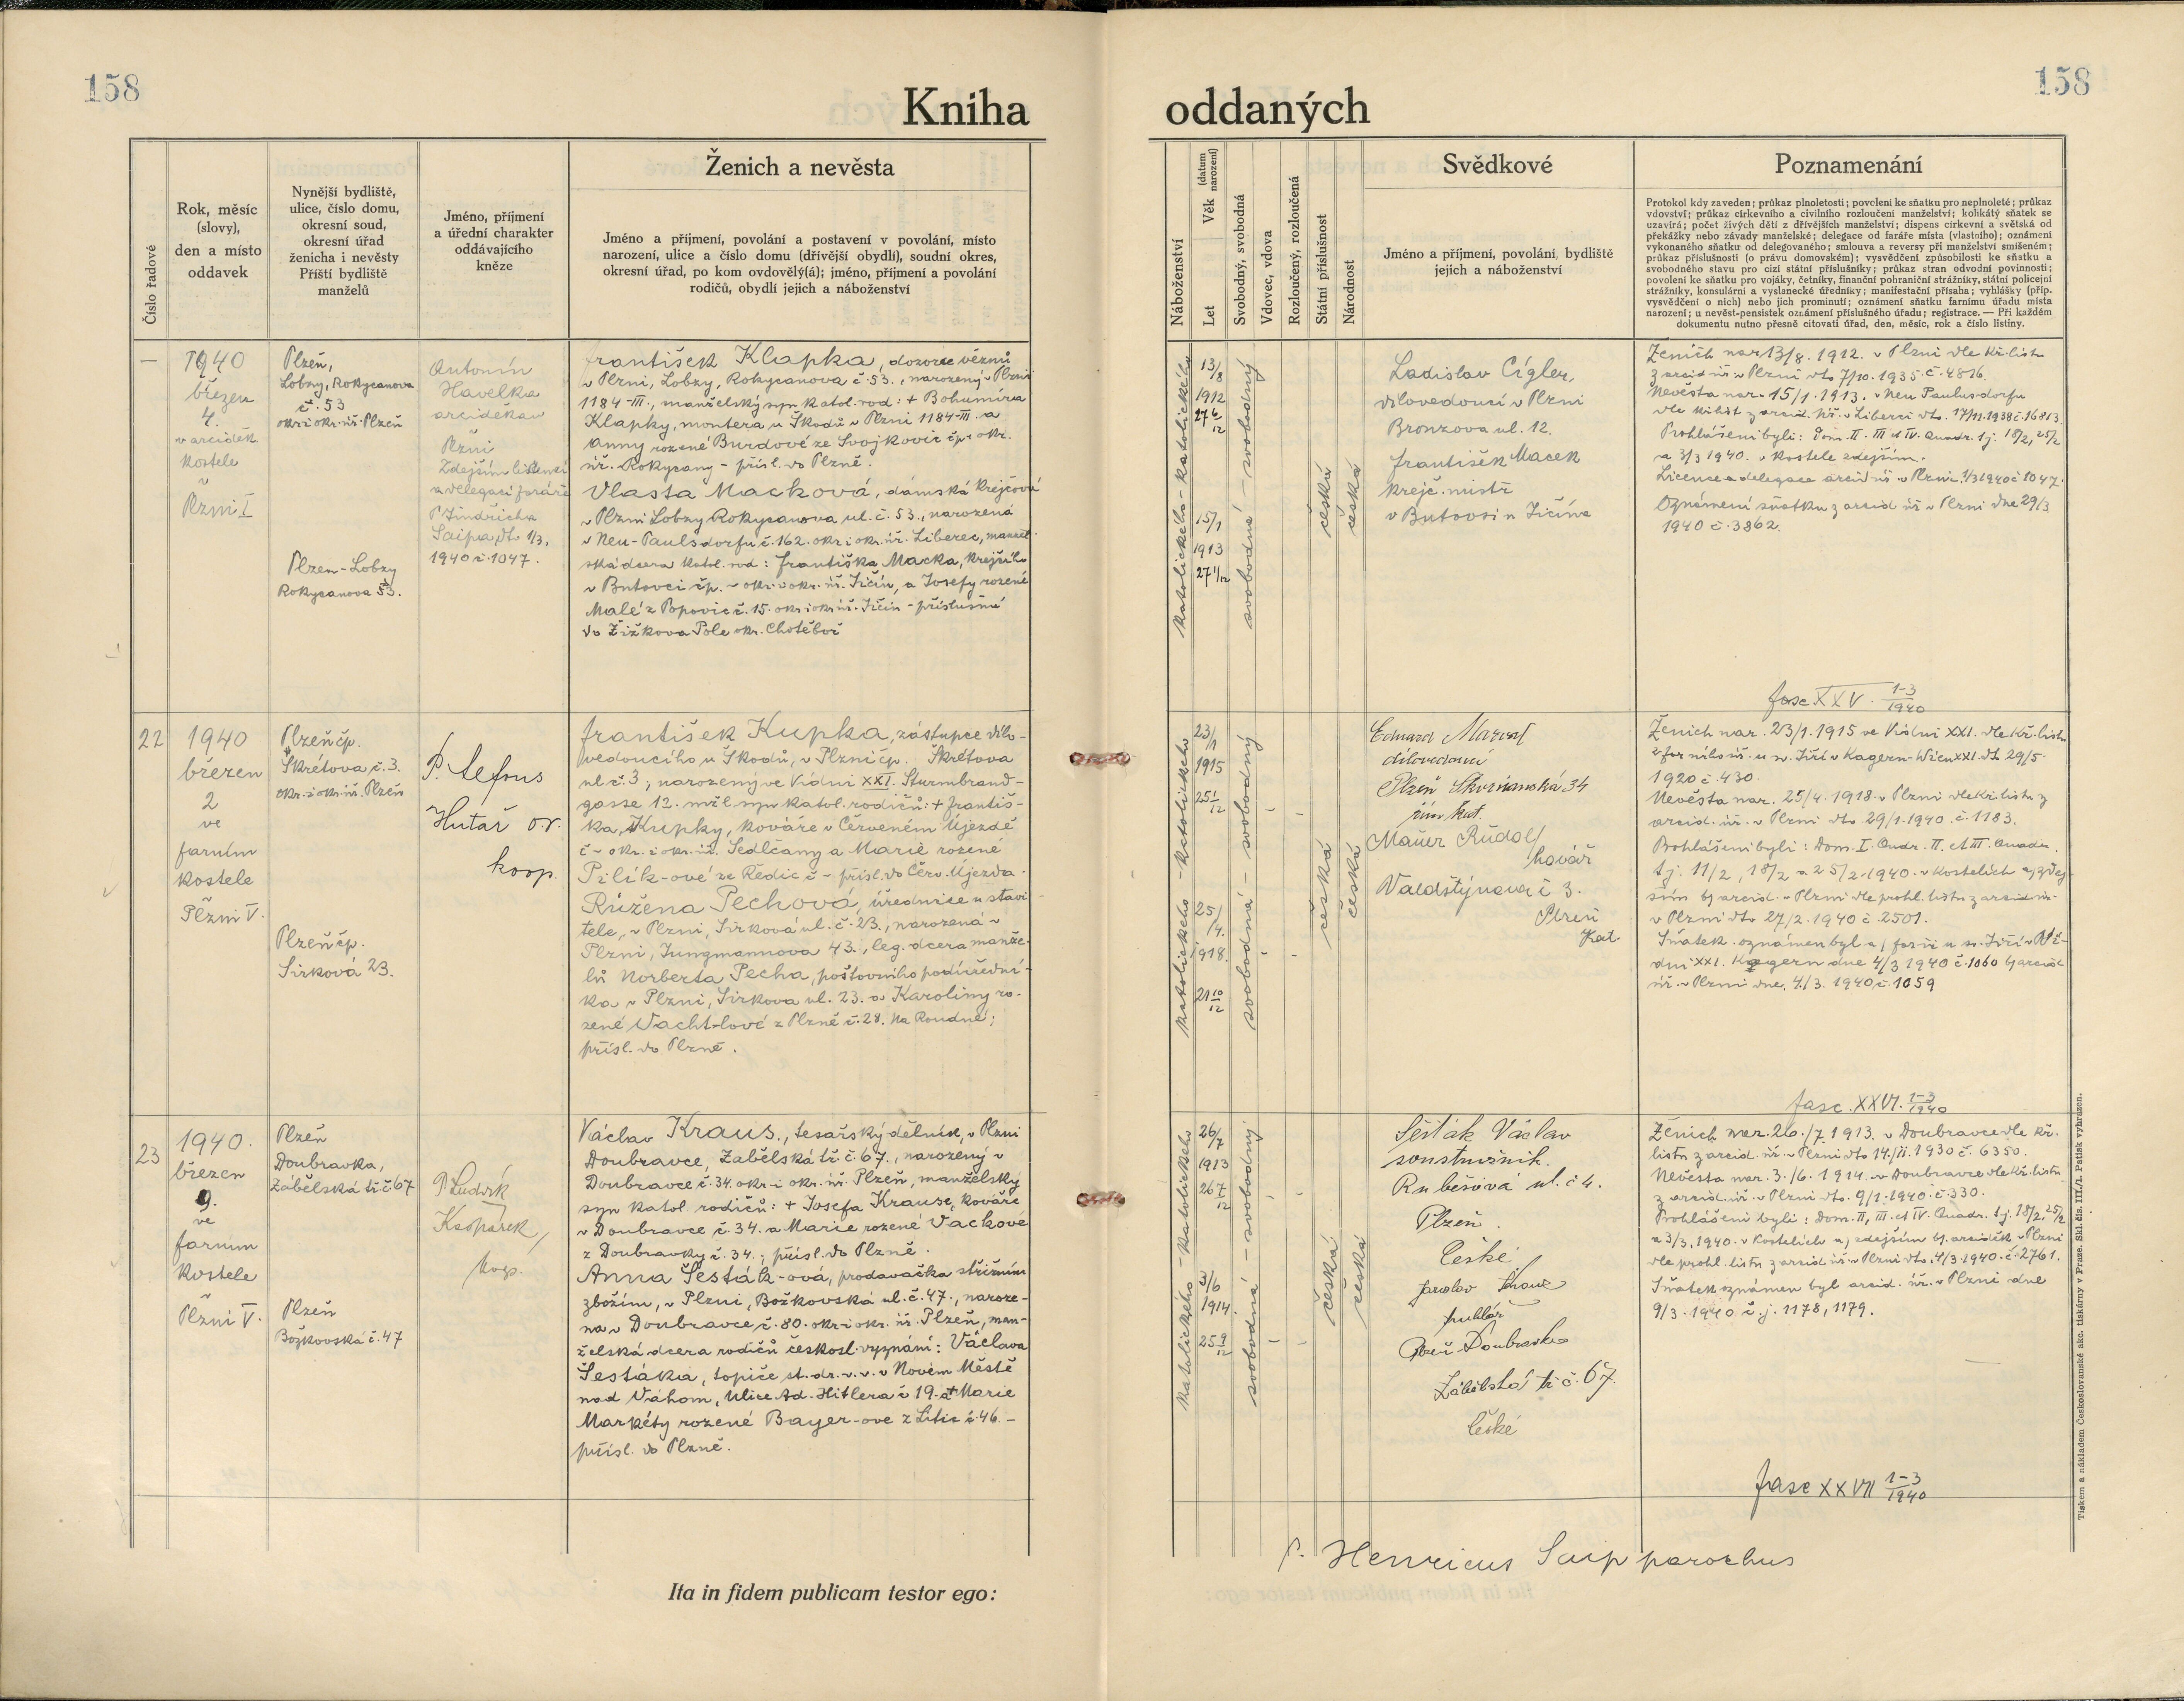 158
158
Kniha oddaných
Číslo řadové
Rok, měsíc
(slovy),
den a místo
oddavek
Nynější bydliště,
ulice, číslo domu,
okresní soud,
okresní úřad
ženicha i nevěsty
Příští bydliště
manželů
Jméno, příjmení
a úřední charakter
oddávajícího
kněze
Ženich a nevěsta
Jméno a příjmení, povolání a postavení v povolání, místo
narození, ulice a číslo domu (dřívější obydlí), soudní okres,
okresní úřad, po kom ovdovělý(á); jméno, příjmení a povolání
rodičů, obydlí jejich a náboženství
Náboženství
Věk (datum narození)
Let
Svobodný, svobodná
Vdovec, vdova
Rozloučený, rozloučená
Státní příslušnost
Národnost
Svědkové
Jméno a příjmení, povolání, bydliště
jejich a náboženství
Poznamenání
Protokol kdy zaveden; průkaz plnoletosti; povolení ke sňatku pro neplnoleté; průkaz
vdovství; průkaz církevního a civilního rozloučení manželství; kolikátý sňatek se
uzavírá; počet živých dětí z dřívějších manželství; dispens církevní a světská od
překážky nebo závady manželské; delegace od faráře místa (vlastního); oznámení
vykonaného sňatku od delegovaného; smlouva a reversy při manželství smíšeném;
průkaz příslušnosti (o právu domovském); vysvědčení způsobilosti ke sňatku a
svobodného stavu pro cizí státní příslušníky; průkaz stran odvodní povinnosti;
povolení ke sňatku pro vojáky, četníky, finanční pohraniční strážníky, státní policejní
strážníky, konsulární a vyslanecké úředníky; manifestační přísaha; vyhlášky (příp.
vysvědčení o nich) nebo jich prominutí; oznámení sňatku farnímu úřadu místa
narození; u nevěst-pensistek oznámení příslušného úřadu; registrace. — Při každém
dokumentu nutno přesně citovati úřad, den, měsíc, rok a číslo listiny.
—
1940
březen
4.
v arciděk.
kostele
v
Plzni I
Plzeň,
Lobzy, Rokycanova
č. 53
okr. i okr. úř. Plzeň
Plzen-Lobzy
Rokycanova 53.
Antonín
Havelka
arciděkan
Plzni
Zdejším licencí
a delegací faráře
P. Jindřicha
Saipa, dto 1/3.
1940 č. 1047.
František Klapka, dozorce vězňů
v Plzni, Lobzy, Rokycanova č. 53., narozený v Plzni
1184-III., manželský syn katol. rod: + Bohumíra
Klapky, montera u Škodů v Plzni 1184-III. a
Anny rozené Burdové ze Svojkovic čp - okr.
úř. Rokycany - přísl. do Plzně.
Vlasta Macková, dámská krejčová
v Plzni Lobzy Rokycanova ul. č. 53., narozená
v Neu-Paulsdorfu č. 162. okr. i okr. úř. Liberec, manžel-
ská dcera katol. rod: Františka Macka, krejčího
v Butovci čp. - okr. i okr. úř. Jičín, a Josefy rozené
Malé z Popovic č. 15. okr. i okr. úř. Jičín - příslušná
do Žižkova Pole okr. Chotěboř
katolického - katolického
13/8
1912
27 6/12
15/1
1913
27 1/12
svobodná - svobodný
česká
česká
Ladislav Cígler,
dílovedoucí v Plzni
Bronzova ul. 12.
František Macek
krejč. mistr
v Butovsi u Jičína
Ženich nar. 13/8. 1912. v Plzni dle kř. listu
z arcid. úř. v Plzni dto 7/10. 1935. č. 4816.
Nevěsta nar. 15/1. 1913. v Neu Paulusdorfu
dle kř. list z arcid. úř. v Liberci dto. 17/11. 1938 č. 16813.
Prohlášeni byli: Dom. II. III et IV. Quadr. tj. 18/2, 25/2
a 3/3 1940. v kostele zdejším.
Licence a delegace arcid. úř. v Plzni. 1/3 1940 č 1047.
Oznámení sňatku z arcid. úř. v Plzni dne 29/3
1940 č. 3862.
fasc XXV. 1-3/1940
22
1940
březen
2
ve
farním
kostele
Plzni V.
Plzeň čp.
Škrétova č. 3.
okr. i okr. úř. Plzeň
Plzeň čp.
Sirková 23.
P.
Hutař o.r.
koop.
František Kupka, zástupce dílo-
vedoucího u Škodů, v Plzni čp. Škrétova
ul. č. 3, narozený ve Vídni XXI. Sturmbrand-
gasse 12. mžl. syn katol. rodičů: + Františ-
ka, Kupky, kováře v Červeném Újezdě
č - okr. i okr. úř. Sedlčany a Marie rozené
Pilík-ové ze Ředic č - přísl. do Červ. Újezda.
Růžena Pechová, úřednice u stavi-
tele, v Plzni, Sirková ul. č. 23., narozená v
Plzni, Jungmannova 43., leg. dcera manže-
lů Norberta Pecha, poštovního podúřední-
ka v Plzni, Sirkova ul. 23. a Karoliny ro-
zené Wachtlové z Plzně č. 28. Na Roudné;
přísl. do Plzně.
katolického - katolického
23/1
1915
25 1/12
25/4.
1918.
21 10/12
svobodná - svobodný
česká
česká
Eduard
dílovedoucí
Plzeň Skvrňanská 34
řím. kat.
Mauer Rudolf
kovář
Valdštýnova č 3.
Plzeň
Kat.
Ženich nar. 23/1. 1915 ve Vídni XXI. dle kř. listu
z farního úř. u sv. Jiří v Kagern-Wien XXI. dto 29/5.
1920 č. 430.
Nevěsta nar. 25/4. 1918 v Plzni dle kř. listu z
arcid. úř. v Plzni dto 29/1. 1940. č. 1183.
Prohlášeni byli: Dom. I. Quadr. II. et III. Quadr.
tj. 11/2, 18/2 a 25/2. 1940. v kostelích a) zdej-
ším b) arcid. v Plzni dle prohl. listu z arcid. úř.
v Plzni dto 27/2. 1940 č. 2501.
Sňatek oznámen byl a) far. úř. u sv. Jiří v Ví-
dni XXI. Kagern dne 4/3 1940 č. 1060 b) arcid.
úř. v Plzni dne. 4./3. 1940. č. 1059
fasc. XXVI. 1-3/1940
23
1940.
březen
9.
ve
farním
kostele
v
Plzni V.
Plzeň
Doubravka,
Zábělská tř. č 67
Plzeň
Božkovská č. 47
P. Ludvík
Kašpárek,
koop.
Václav Kraus., tesařský dělník, v Plzni
Doubravce, Zabělská tř. č. 67., narozený v
Doubravce č. 34. okr. i okr. úř. Plzeň, manželský
syn katol. rodičů: + Josefa Krause, kováře
v Doubravce č. 34. a Marie rozené Vackové
z Doubravky č. 34.; přísl. do Plzně.
Anna Šesták-ová, prodavačka střižním
zbožím, v Plzni, Božkovská ul. č. 47., naroze-
na v Doubravce č. 80. okr. i okr. úř. Plzeň, man-
želská dcera rodičů českosl. vyznání: Václava
Šestáka, topiče st. dr. v. v. v Novém Městě
nad Váhom, Ulice Ad. Hitlera č 19. a + Marie
Markéty rozené Bayer-ove z Litic č. 46. -
přísl. do Plzně.
katolického - katolického
26/7
1913
26 7/12
3/6
1914.
25 9/12
svobodná - svobodný
česká
česká
Šesták Václav
soustružník.
Rubešova ul. č 4.
Plzeň.
České
Jaroslav
truhlář
Plzeň Doubravka
Zábělská tř. č. 67.
České
Ženich nar. 26./7. 1913. v Doubravce dle kř.
listu z arcid. úř. v Plzni dto 14./11. 1930 č. 6350.
Nevěsta nar. 3./6. 1914. v Doubravce dle kř. listu
z arcid. úř. v Plzni dto. 9/1. 1940. č. 330.
Prohlášeni byli: Dom. II, III. et IV. Quadr. tj. 18/2, 25/2
a 3/3. 1940. v kostelích a) zdejším b) arciděk. v Plzni
dle prohl. listu z arcid. úř. v Plzni dto. 4/3. 1940. č. 2761.
Sňatek oznámen byl arcid. úř. v Plzni dne
9/3. 1940 č. j. 1178, 1179.
fasc XXVII 1-3/1940
P. Henricus Saip parochus
Ita in fidem publicam testor ego:
Tiskem a nákladem Československé akc. tiskárny v Praze. Skl. čís. III./1. Patisk vyhrazen.